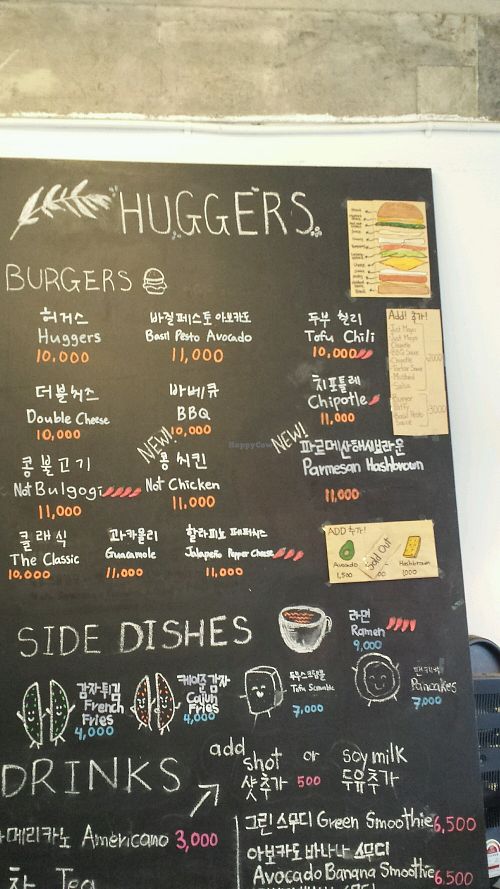 HUGGERS
BURGERS
허거스
Huggers
10,000
바질페스토아보카도
Basil Pesto Avocado
11,000
두부 칠리
Tofu Chili
10,000
Add! 추가!
Just Mayo
Just Mayo
Chipotle
BBQ Sauce
Chipotle
Tartar Sauce
Mustard
Salsa
2000
Burger
Patty
Basil Pesto
Sauce
3000
더블치즈
Double Cheese
10,000
바베큐
BBQ
10,000
치포틀레
Chipotle
11,000
콩불고기
Not Bulgogi
11,000
NEW!
콩치킨
Not Chicken
11,000
NEW!
파르메산해시브라운
Parmesan Hashbrown
11,000
클래식
The Classic
10,000
과카몰리
Guacamole
11,000
할라피뇨 페퍼치즈
Jalapeño Pepper Cheese
11,000
ADD 추가!
Avocado
1,500
Sold Out
Hashbrown
1000
SIDE DISHES
라면
Ramen
9,000
감자튀김
French
Fries
4,000
케이준감자
Cajun
Fries
4,000
두부스크램블
Tofu Scramble
7,000
팬케익
Pancakes
7,000
DRINKS
add
shot or soymilk
샷추가 500 두유추가
아메리카노 Americano 3,000
차 Tea
그린 스무디 Green Smoothie 6,500
아보카도바나나 스무디
Avocado Banana Smoothie 6,500